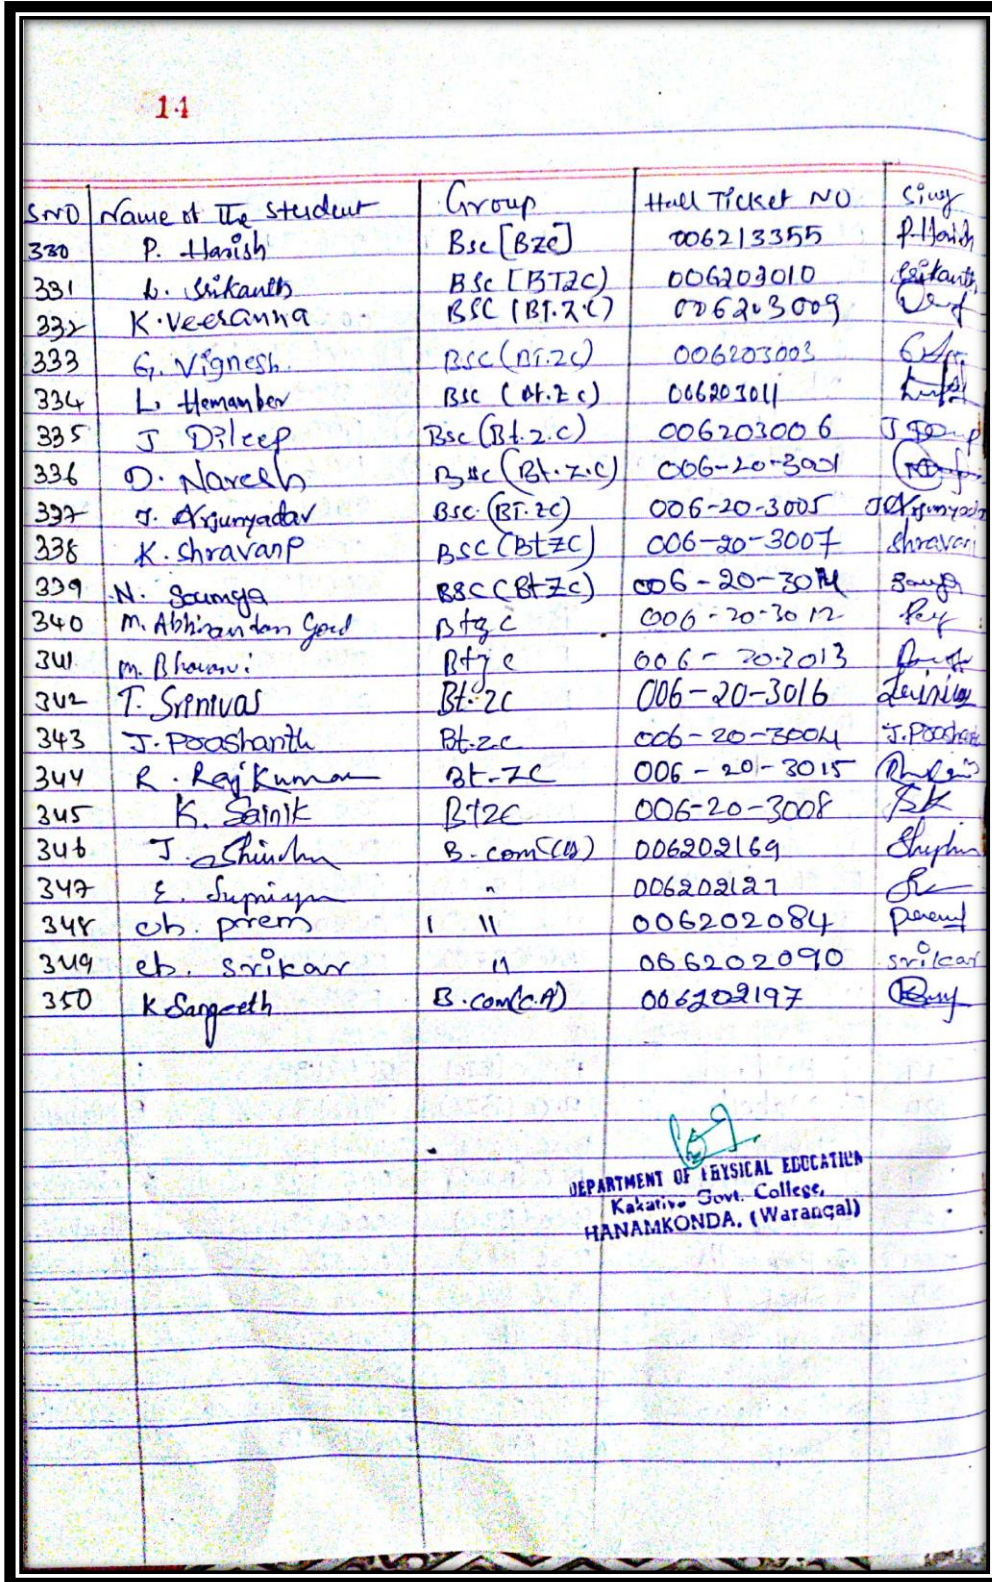 14
SNO Name of The student Group Hall Ticket NO Sing
330 P. Harish Bsc [Bzc] 006213355 P. Harish
331 b. Srikanth BSc [BTZC) 006203010 Srikanth
332 K. Veeranna BSC (BT.Z.C) 006203009
333 G. Vignesh. BSC (BT.ZC) 006203003
334 L. Hemamber BSC (Bt.Z c) 006203011
335 J Dileep Bsc (Bt.Z.C) 006203006
336 D. Naresh Bsc (Bt.Z.C) 006-20-3001
337 J. Arjunyadav BSC (BT.ZC) 006-20-3005 J Arjunyadav
338 K. Shravan BSC (BtZC) 006-20-3007 Shravan
339 N. Soumya BSC (BtZC) 006-20-3014
340 M. Abhinandan Goud Btzc 006-20-3012
341 M. Bhavani Btzc 006-20-3013
342 T. Srinivas Bt.ZC 006-20-3016 Srinivas
343 J. Prashanth Bt.zc 006-20-3004 J. Prashanth
344 R. Raj Kumar Bt-ZC 006-20-3015
345 K. Sainik BTZC 006-20-3008 SK
346 J. B.com(CA) 006202169
347 E. Supriya " 006202127
348 ch. prem 11 006202084 prem
349 ch. srikar 11 006202090 srikar
350 K Sangeeth B.com(C.A) 006202197
DEPARTMENT OF PHYSICAL EDUCATION
Kakatiya Govt. College,
HANAMKONDA. (Warangal)